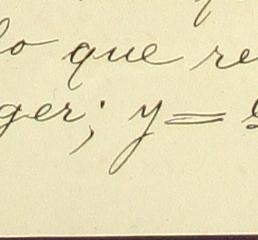 lo que re
ger; y=